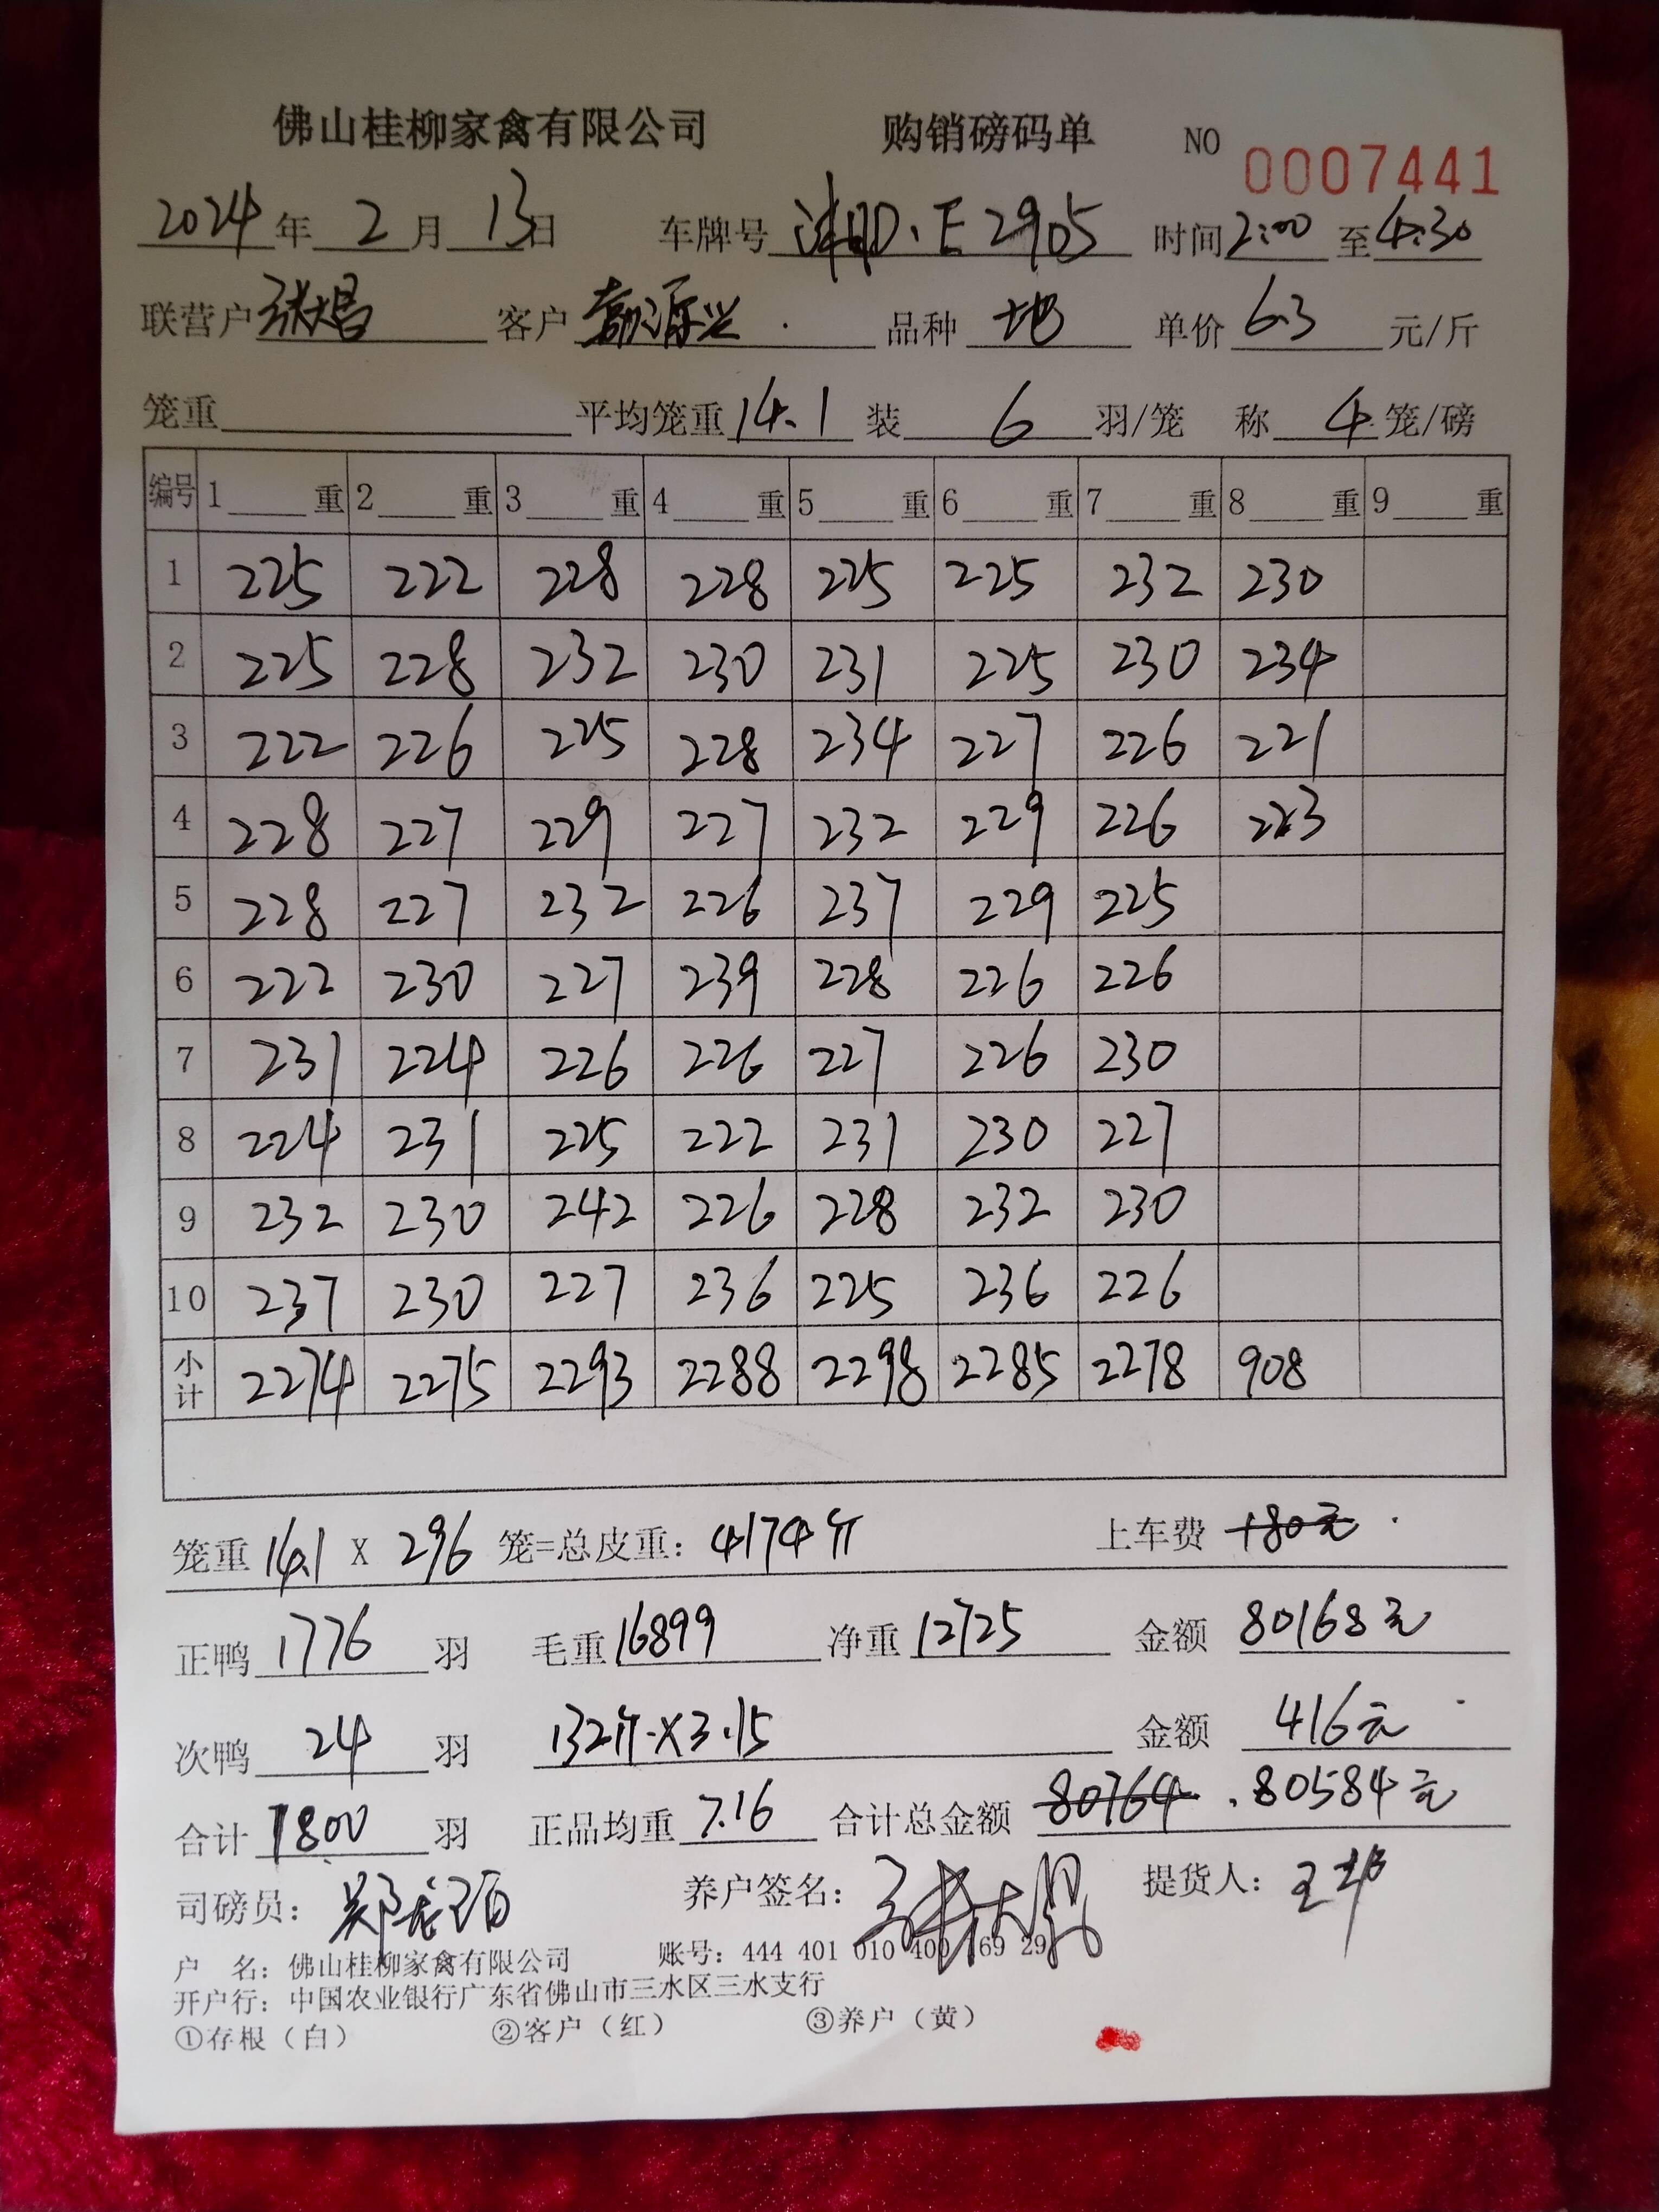 佛山桂柳家禽有限公司 购销磅码单 NO 0007441
2024年 2月 13日 车牌号 D·E2905 时间2:00至4:30
联营户 张大昌 客户 源兴 品种 地 单价 6.3 元/斤
笼重 平均笼重 14.1 装 6 羽/笼 称 4 笼/磅
编号 1 重 2 重 3 重 4 重 5 重 6 重 7 重 8 重 9 重
1 225 222 228 228 225 225 232 230
2 225 228 232 230 231 225 230 234
3 222 226 225 228 234 227 226 221
4 228 227 229 227 232 229 226 223
5 228 227 232 226 237 229 225
6 222 230 227 239 228 226 226
7 231 224 226 226 227 226 230
8 224 231 225 222 231 230 227
9 232 230 242 226 228 232 230
10 237 230 227 236 225 236 226
小计 2274 2275 2293 2288 2298 2285 2278 908
笼重 14.1 X 296 笼=总皮重: 4174斤 上车费 +80元
正鸭 1776 羽 毛重 16899 净重 12725 金额 80168元
次鸭 24 羽 132斤×3.15 金额 416元
合计 1800 羽 正品均重 7.16 合计总金额 80764 80584元
司磅员: 郑 养户签名: 张大 提货人: 王
户 名: 佛山桂柳家禽有限公司 账号: 444 401 010 400 69 29
开户行: 中国农业银行广东省佛山市三水区三水支行
①存根(白) ②客户(红) ③养户(黄)